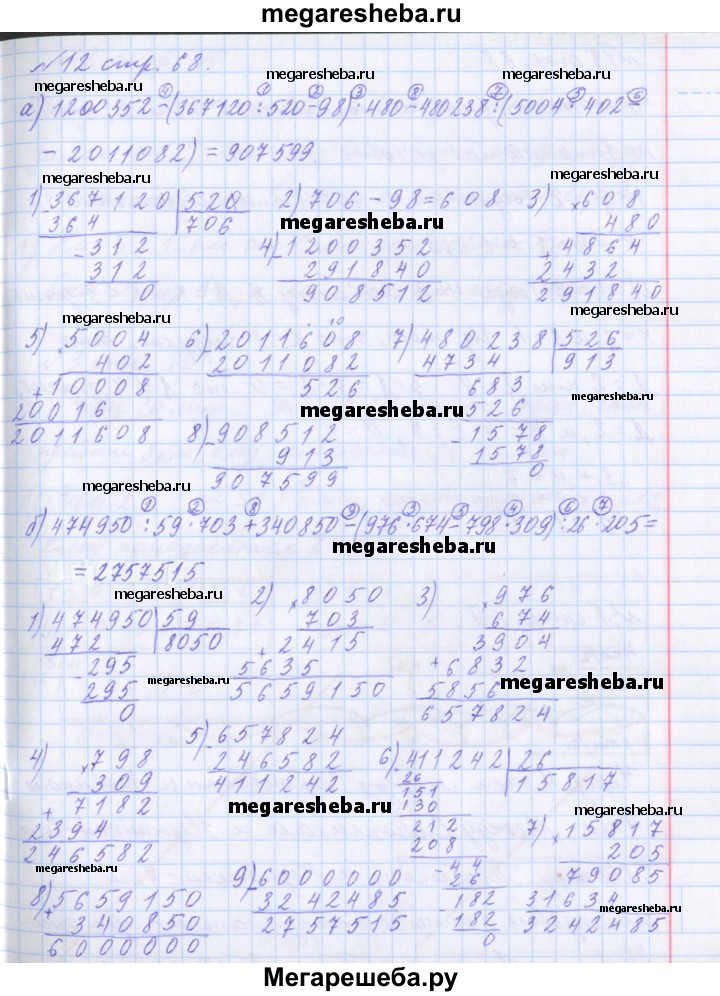 megaresheba.ru
№12 стр. 68.
megaresheba.ru megaresheba.ru
а) 1200352 − (367120 : 520 − 98) · 480 − 480238 : (5004 · 402 −
− 2011082) = 907599
megaresheba.ru megaresheba.ru
1) 367120 | 520 2) 706 − 98 = 608 3) × 608
364 706 megaresheba.ru 480
312 4) 1200352 + 4864
312 291840 2432
0 908512 291840
megaresheba.ru
5) × 5004 6) 2011608 7) 480238 | 526
402 2011082 4734 913
+ 10008 526 683 megaresheba.ru
20016 megaresheba.ru 526
2011608 8) 908512 1578
913 1578
megaresheba.ru 907599 0
б) 474950 : 59 · 703 + 340850 − (976 · 674 − 798 · 309) : 26 · 205 =
megaresheba.ru
= 2757515
megaresheba.ru
1) 474950 | 59 2) × 8050 3) × 976
472 8050 703 674
295 + 2415 3904
295 5635 + 6832
0 5659150 5856
megaresheba.ru megaresheba.ru
657824
4) × 798 5) 657824 6) 411242 | 26
309 246582 26 15817
+ 7182 411242 151
2394 megaresheba.ru 130 megaresheba.ru
246582 212 7) × 15817
208 205
megaresheba.ru 44 79085
8) 5659150 9) 6000000 26 31634
+ 340850 3242485 182 3242485
6000000 2757515 182
0
megaresheba.ru megaresheba.ru
Мегарешеба.ру